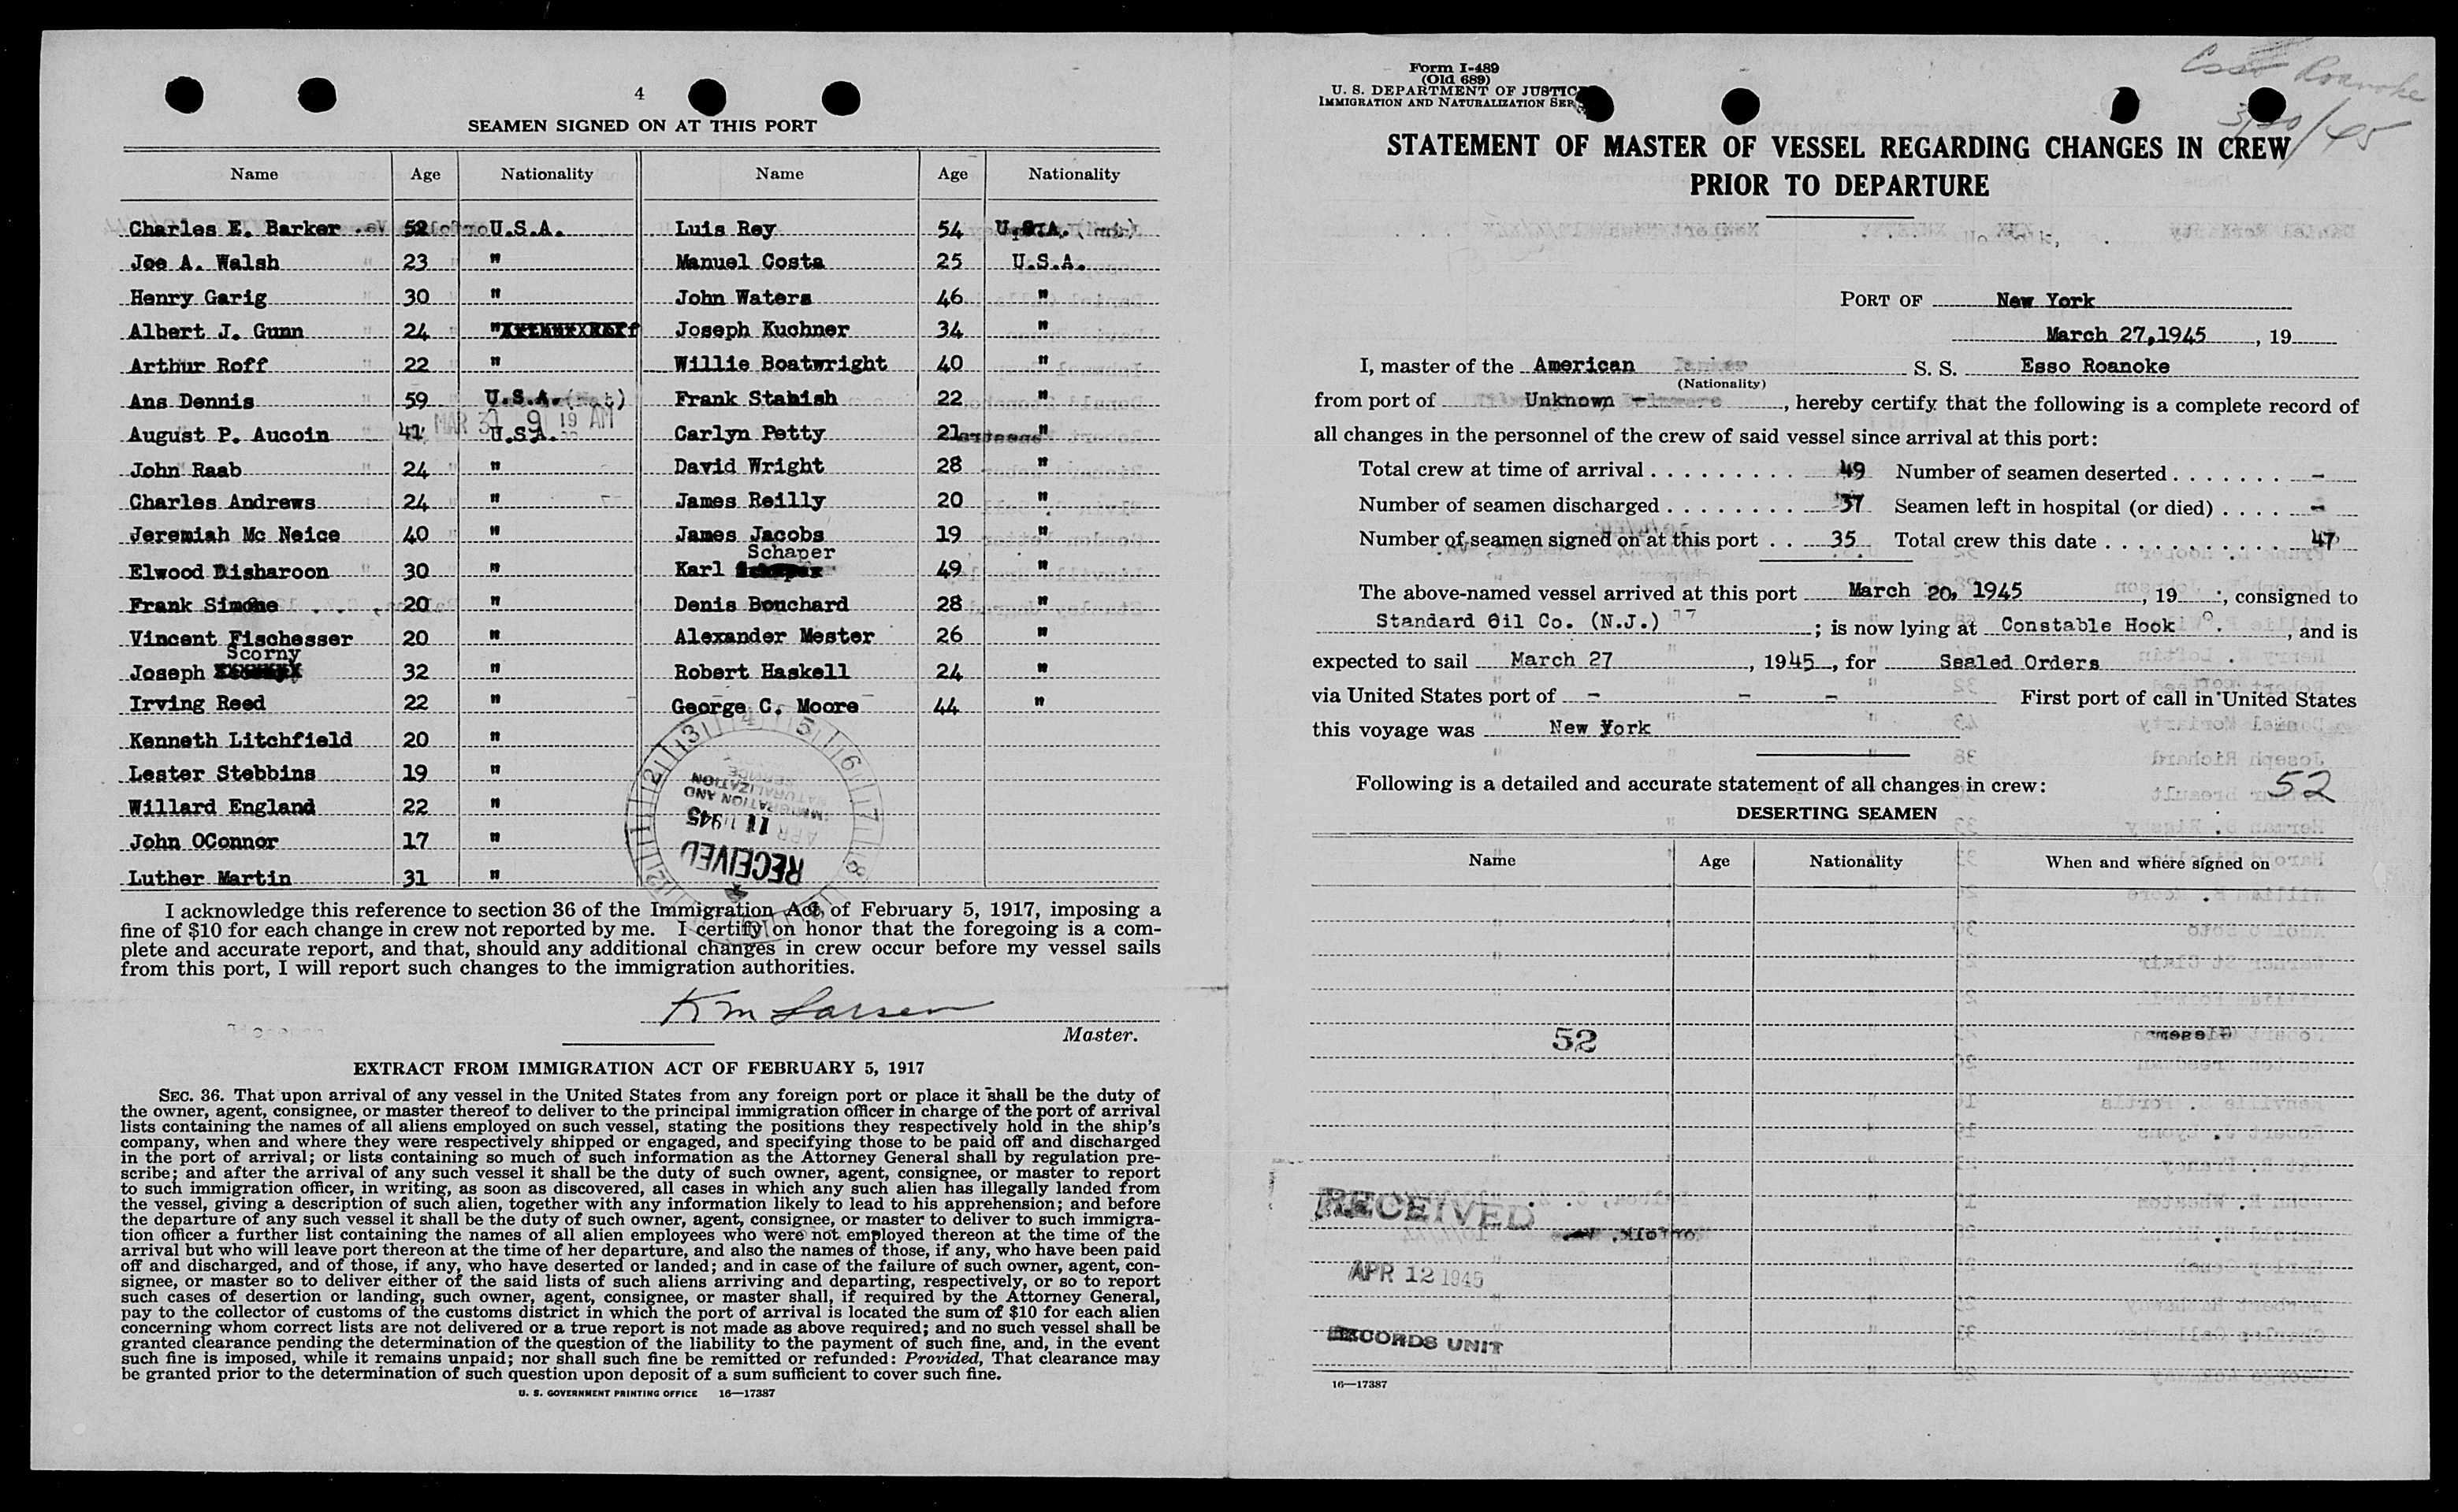 4
SEAMEN SIGNED ON AT THIS PORT
Name Age Nationality Name Age Nationality
Charles E. Barker 52 U.S.A. Luis Rey 54 U.S.A.
Joe A. Walsh 23 " Manuel Costa 25 U.S.A.
Henry Garig 30 " John Waters 46 "
Albert J. Gunn 24 " Joseph Kuchner 34 "
Arthur Roff 22 " Willie Boatwright 40 "
Ans Dennis 59 U.S.A. Frank Stanish 22 "
MAR 31 9 19 AM
August P. Aucoin 41 U.S.A. Carlyn Petty 21 "
John Raab 24 " David Wright 28 "
Charles Andrews 24 " James Reilly 20 "
Jeremiah Mc Neice 40 " James Jacobs 19 "
Elwood Disharoon 30 " Karl Schaper 49 "
Frank Simone 20 " Denis Bouchard 28 "
Vincent Fischesser 20 " Alexander Mester 26 "
Joseph Scorny 32 " Robert Haskell 24 "
Irving Reed 22 " George C. Moore 44 "
Kenneth Litchfield 20 "
Lester Stebbins 19 "
Willard England 22 "
John OConnor 17 "
Luther Martin 31 "
IMMIGRATION AND NATURALIZATION SERVICE
APR 11 1945
RECEIVED
I acknowledge this reference to section 36 of the Immigration Act of February 5, 1917, imposing a
fine of $10 for each change in crew not reported by me. I certify on honor that the foregoing is a com-
plete and accurate report, and that, should any additional changes in crew occur before my vessel sails
from this port, I will report such changes to the immigration authorities.
K M Larsen
Master.
EXTRACT FROM IMMIGRATION ACT OF FEBRUARY 5, 1917
SEC. 36. That upon arrival of any vessel in the United States from any foreign port or place it shall be the duty of
the owner, agent, consignee, or master thereof to deliver to the principal immigration officer in charge of the port of arrival
lists containing the names of all aliens employed on such vessel, stating the positions they respectively hold in the ship's
company, when and where they were respectively shipped or engaged, and specifying those to be paid off and discharged
in the port of arrival; or lists containing so much of such information as the Attorney General shall by regulation pre-
scribe; and after the arrival of any such vessel it shall be the duty of such owner, agent, consignee, or master to report
to such immigration officer, in writing, as soon as discovered, all cases in which any such alien has illegally landed from
the vessel, giving a description of such alien, together with any information likely to lead to his apprehension; and before
the departure of any such vessel it shall be the duty of such owner, agent, consignee, or master to deliver to such immigra-
tion officer a further list containing the names of all alien employees who were not employed thereon at the time of the
arrival but who will leave port thereon at the time of her departure, and also the names of those, if any, who have been paid
off and discharged, and of those, if any, who have deserted or landed; and in case of the failure of such owner, agent, con-
signee, or master so to deliver either of the said lists of such aliens arriving and departing, respectively, or so to report
such cases of desertion or landing, such owner, agent, consignee, or master shall, if required by the Attorney General,
pay to the collector of customs of the customs district in which the port of arrival is located the sum of $10 for each alien
concerning whom correct lists are not delivered or a true report is not made as above required; and no such vessel shall be
granted clearance pending the determination of the question of the liability to the payment of such fine, and, in the event
such fine is imposed, while it remains unpaid; nor shall such fine be remitted or refunded: Provided, That clearance may
be granted prior to the determination of such question upon deposit of a sum sufficient to cover such fine.
U. S. GOVERNMENT PRINTING OFFICE 16—17387
Esso Roanoke
3/20/45
Form I-489
(Old 689)
U. S. DEPARTMENT OF JUSTICE
IMMIGRATION AND NATURALIZATION SER
STATEMENT OF MASTER OF VESSEL REGARDING CHANGES IN CREW
PRIOR TO DEPARTURE
PORT OF New York
March 27,1945, 19
I, master of the American S. S. Esso Roanoke
(Nationality)
from port of Unknown, hereby certify that the following is a complete record of
all changes in the personnel of the crew of said vessel since arrival at this port:
Total crew at time of arrival . . . . . . . . . . 49 Number of seamen deserted . . . . . . . -
Number of seamen discharged . . . . . . . . . 37 Seamen left in hospital (or died) . . . . -
Number of seamen signed on at this port . . 35 Total crew this date . . . . . . . . . . . 47
The above-named vessel arrived at this port March 20, 1945, 19 , consigned to
Standard Oil Co. (N.J.); is now lying at Constable Hook, and is
expected to sail March 27, 1945, for Sealed Orders
via United States port of - - - First port of call in United States
this voyage was New York
Following is a detailed and accurate statement of all changes in crew: 52
DESERTING SEAMEN
Name Age Nationality When and where signed on
52
RECEIVED
APR 12 1945
RECORDS UNIT
16—17387